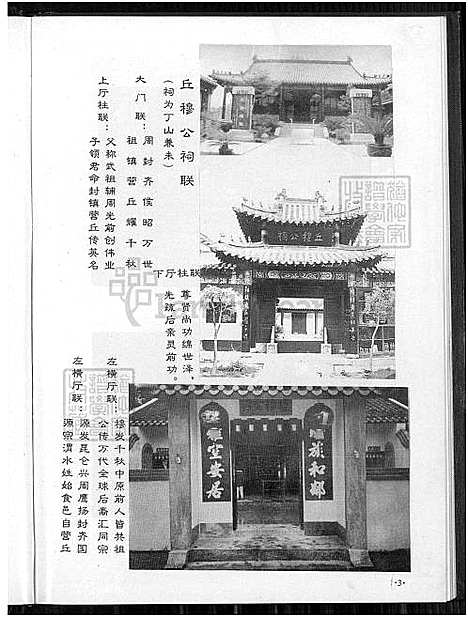 丘穆公祠联
(祠为丁山兼未)
大门联：周封齐侯昭万世
祖镇营丘耀千秋
上厅柱联：父称武祖辅周光前创伟业
子领君命封镇营丘传英名
下厅柱联
尊贤尚功绵世泽，
先疏后亲灵前功。
左横厅联：穆发千秋中原前人皆共祖
公传万代全球后裔汇同宗
左横厅联：源发昆仑兴周鹰扬封齐国
源宗渭水姓始食邑自营丘
丘穆公祠
室安居
族和邻
·3·